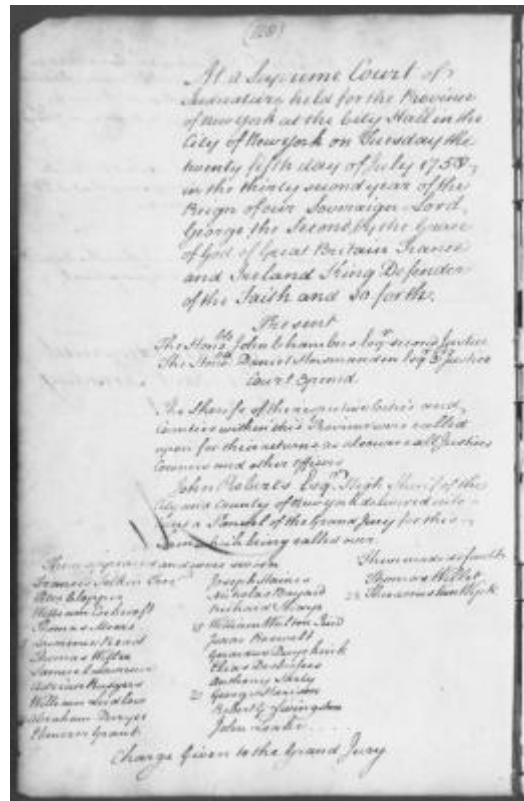 (128)
At a Supreme Court of
Judicature held for the Province
of New York at the City Hall in the
City of New York on Tuesday the
twenty fifth day of July 1758,
in the thirty second year of the
Reign of our Sovereign Lord
George the Second by the Grace
of God of Great Britain France
and Ireland King Defender
of the Faith and so forth.
Present
The Honble John Chambers Esqr second Justice
The Honble Daniel Horsmanden Esqr 3d Justice
Court opened
The Sherifs of the respective Cities and
Counties within this Province were called
upon for their returns as also were all Justices
Coroners and other officers
John Roberts Esqr High Sherif of the
City and County of New York delivered into
a Pannel of the Grand Jury for this
which being called over
Then appeared and were sworn
Francis
Peter Clopper
William
Thomas
Lawrence Read
Thomas
Samuel Lawrence
Adrian Rutgers
William Ludlow
Abraham
Ebenezer Grant
Joseph Haines
Nicholas Bayard
Richard Sharp
15 William Walton
Isaac Roosevelt
Gerardus Duyckinck
Elias Desbrosses
Anthony
20 George Harison
Robert G Livingston
John Leake
These made default
Thomas Willet
Theodorus Van Wyck
Charge Given to the Grand Jury